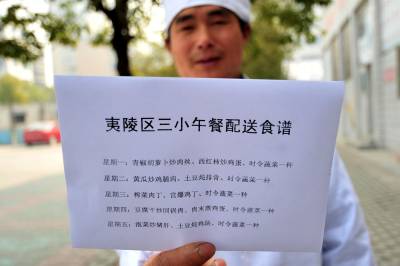 夷陵区三小午餐配送食谱
星期一：青椒胡萝卜炒肉丝、西红柿炒鸡蛋、时令蔬菜一种
星期二：黄瓜炒鸡脯肉、土豆炖排骨、时令蔬菜一种
星期三：榨菜肉丁、宫爆鸡丁、时令蔬菜一种
星期四：豆腐干炒回锅肉、肉末蒸鸡蛋、时令蔬菜一种
星期五：泡菜炒猪肝、土豆炖鸡块、时令蔬菜一种